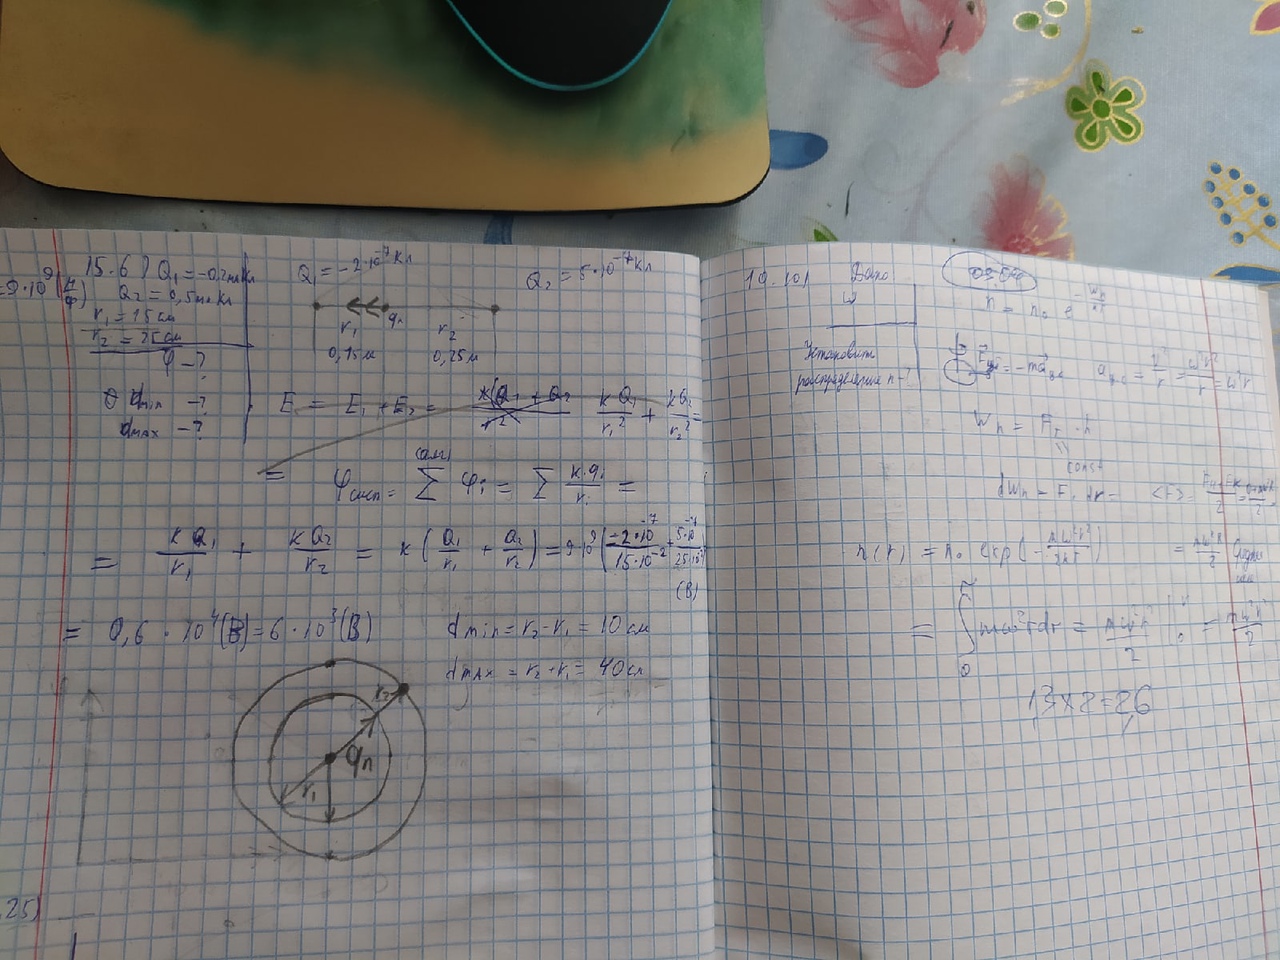 15.6) Q₁ = -0,2мкКл
= 9·10⁹ (м/Ф) Q₂ = 0,5мкКл
r₁ = 15 см
r₂ = 25 см
φ - ?
dmin - ?
dmax - ?
Q₁ = -2·10⁻⁷ Кл
Q₂ = 5·10⁻⁷ Кл
qп
r₁ r₂
0,15м 0,25м
E = E₁ + E₂ = k(Q₁ + Q₂)/r² kQ₁/r₁² + kQ₂/r₂² =
= φсист = ∑ φi = ∑ k·qi/ri =
= kQ₁/r₁ + kQ₂/r₂ = k(Q₁/r₁ + Q₂/r₂) = 9·10⁹(-2·10⁻⁷/15·10⁻² + 5·10⁻⁷/25·10⁻²)
(В)
= 0,6 · 10⁴(В) = 6 · 10³(В)
dmin = r₂ - r₁ = 10 см
dmax = r₂ + r₁ = 40 см
r₂
qп
r₁
25)
10.10) Дано
ω
Установить
распределение n - ?
n = n₀ e
aцс = v²/r = ω²r²/r = ω²r
Wп =
const
n(r) = n₀ exp(- mω²r²/2kT)
= ∫ mω²rdr = mω²r²/2 | = mω²r²/2
1,3 × 2 = 2,6